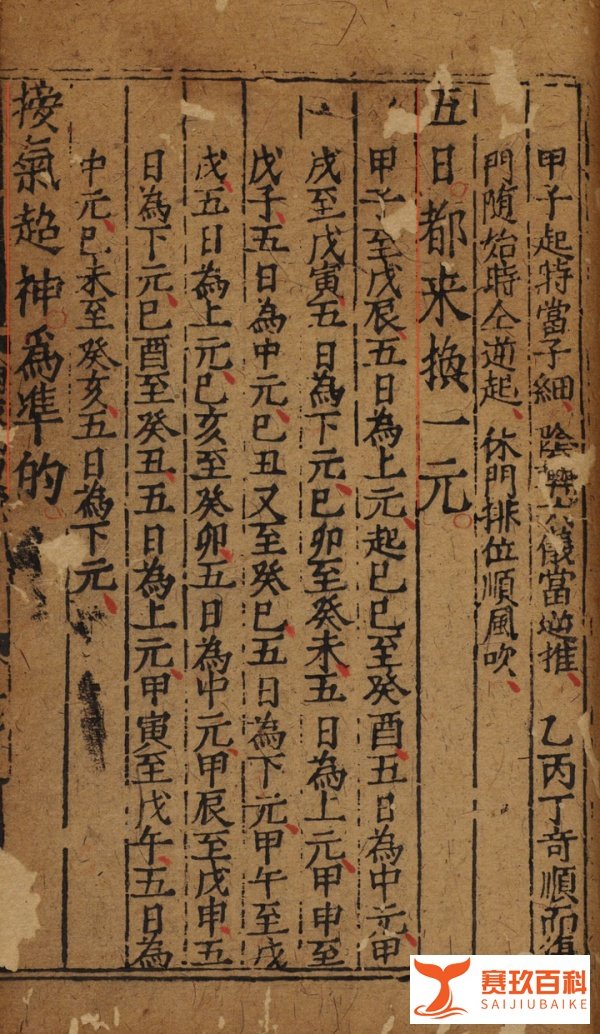 甲子起時當子細陰　　儀當逆推　乙丙丁奇順而
門隨始時仝逆起　休門排位順風吹
五日都來換一元
甲子至戊辰五日為上元起己巳至癸酉五日為中元甲
戌至戊寅五日為下元己卯至癸未五日為上元甲申至
戊子五日為中元己丑又至癸巳五日為下元甲午至戊
戌五日為上元己亥至癸卯五日為中元甲辰至戊申五
日為下元己酉至癸丑五日為上元甲寅至戊午五日為
中元己未至癸亥五日為下元
接氣超神為準的
赛玖百科
SAIJIUBAIKE